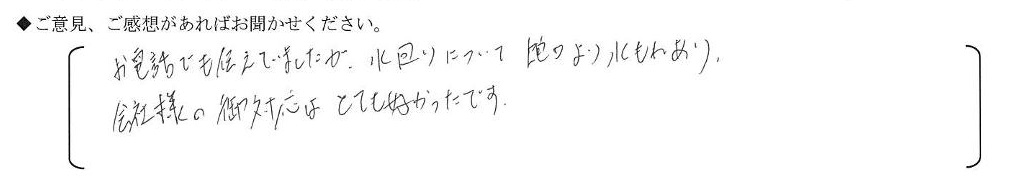 ◆ご意見、ご感想があればお聞かせください。
お電話でも伝えていましたが、水回りについて 蛇口より水もれあり、
会社様の御対応はとても好かったです。